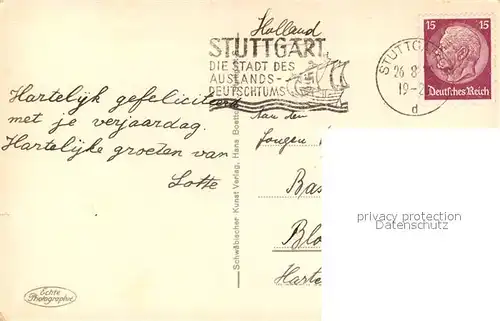 Holland
STUTTGART
DIE STADT DES
AUSLANDS-
DEUTSCHTUMS
STUTTG
26 8
19-2
d
15 15
Deutsches Reich
Hartelijk gefeliciteerd
met je verjaardag.
Hartelijke groeten van
Lotte
Aan den
Jongen
Bas
Blo
Harte
Schwäbischer Kunst Verlag, Hans Boett
privacy protection
Datenschutz
Echte
Photographie